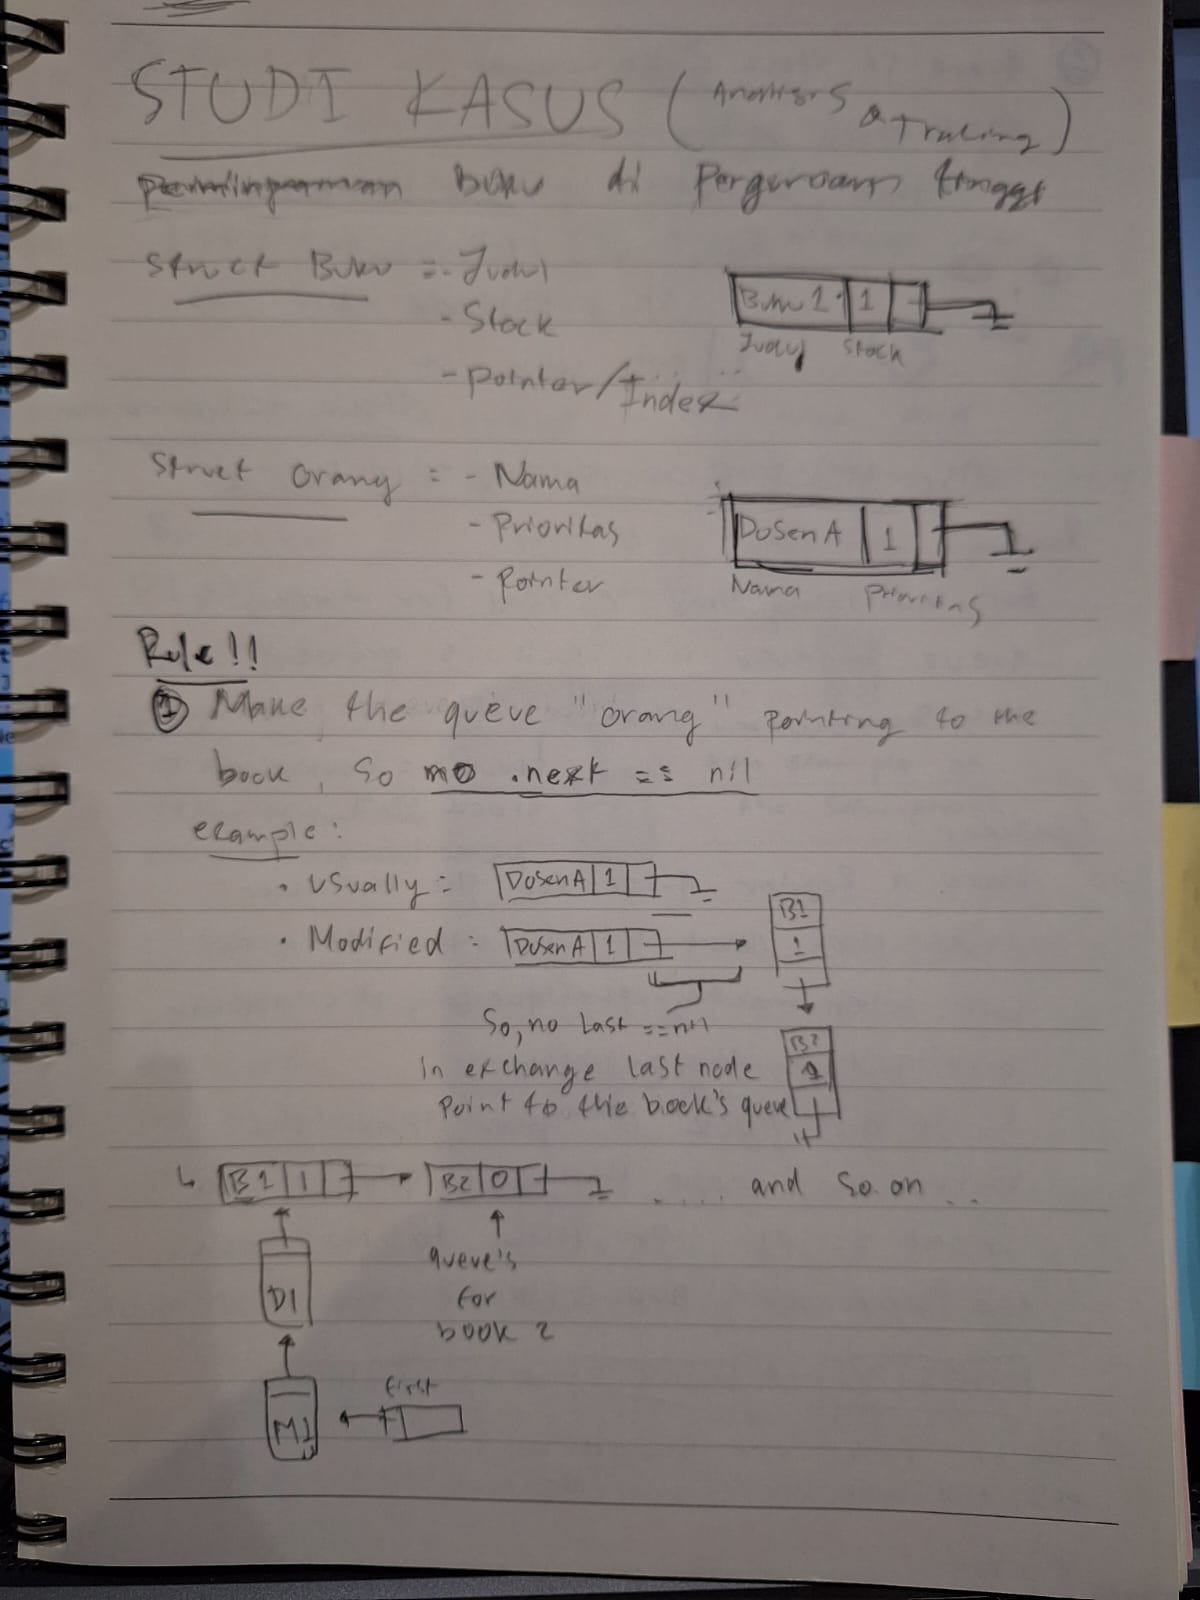 STUDI KASUS (Analisis & Tracing)
Peminjaman Buku di Perguruan tinggi
Struct Buku = - Judul
- Stock
- Pointer/Index
Buku 1 1
Judul Stock
Struct orang = - Nama
- Prioritas
- Pointer
Dosen A 1
Nama Prioritas
Rule !!
1 Make the queue "orang" pointing to the
book, so no .next == nil
example :
• Usually = Dosen A 1
• Modified = Dosen A 1
B1
1
So, no Last == nil
in exchange last node
Point to the book's queue
B2
B1 1 B2 0 ..... and so on ...
D1
queue's
for
book 2
first
M1